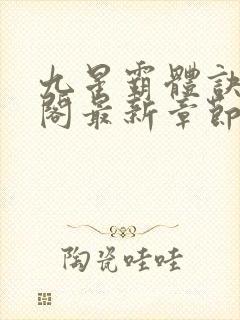 九星霸體訣
閣最新章節
陶瓷哇哇